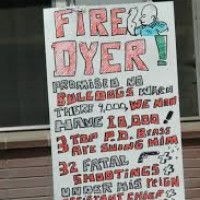 FIRE
DYER!
PROMISED NO
BULLDOGS WHEN
THERE 9,000, WE NOW
HAVE 10,000!
3 TOP P.D. BRASS
ARE SUING HIM
32 FATAL
SHOOTINGS
UNDER HIS REIGN
ASSISTANT CHIEF